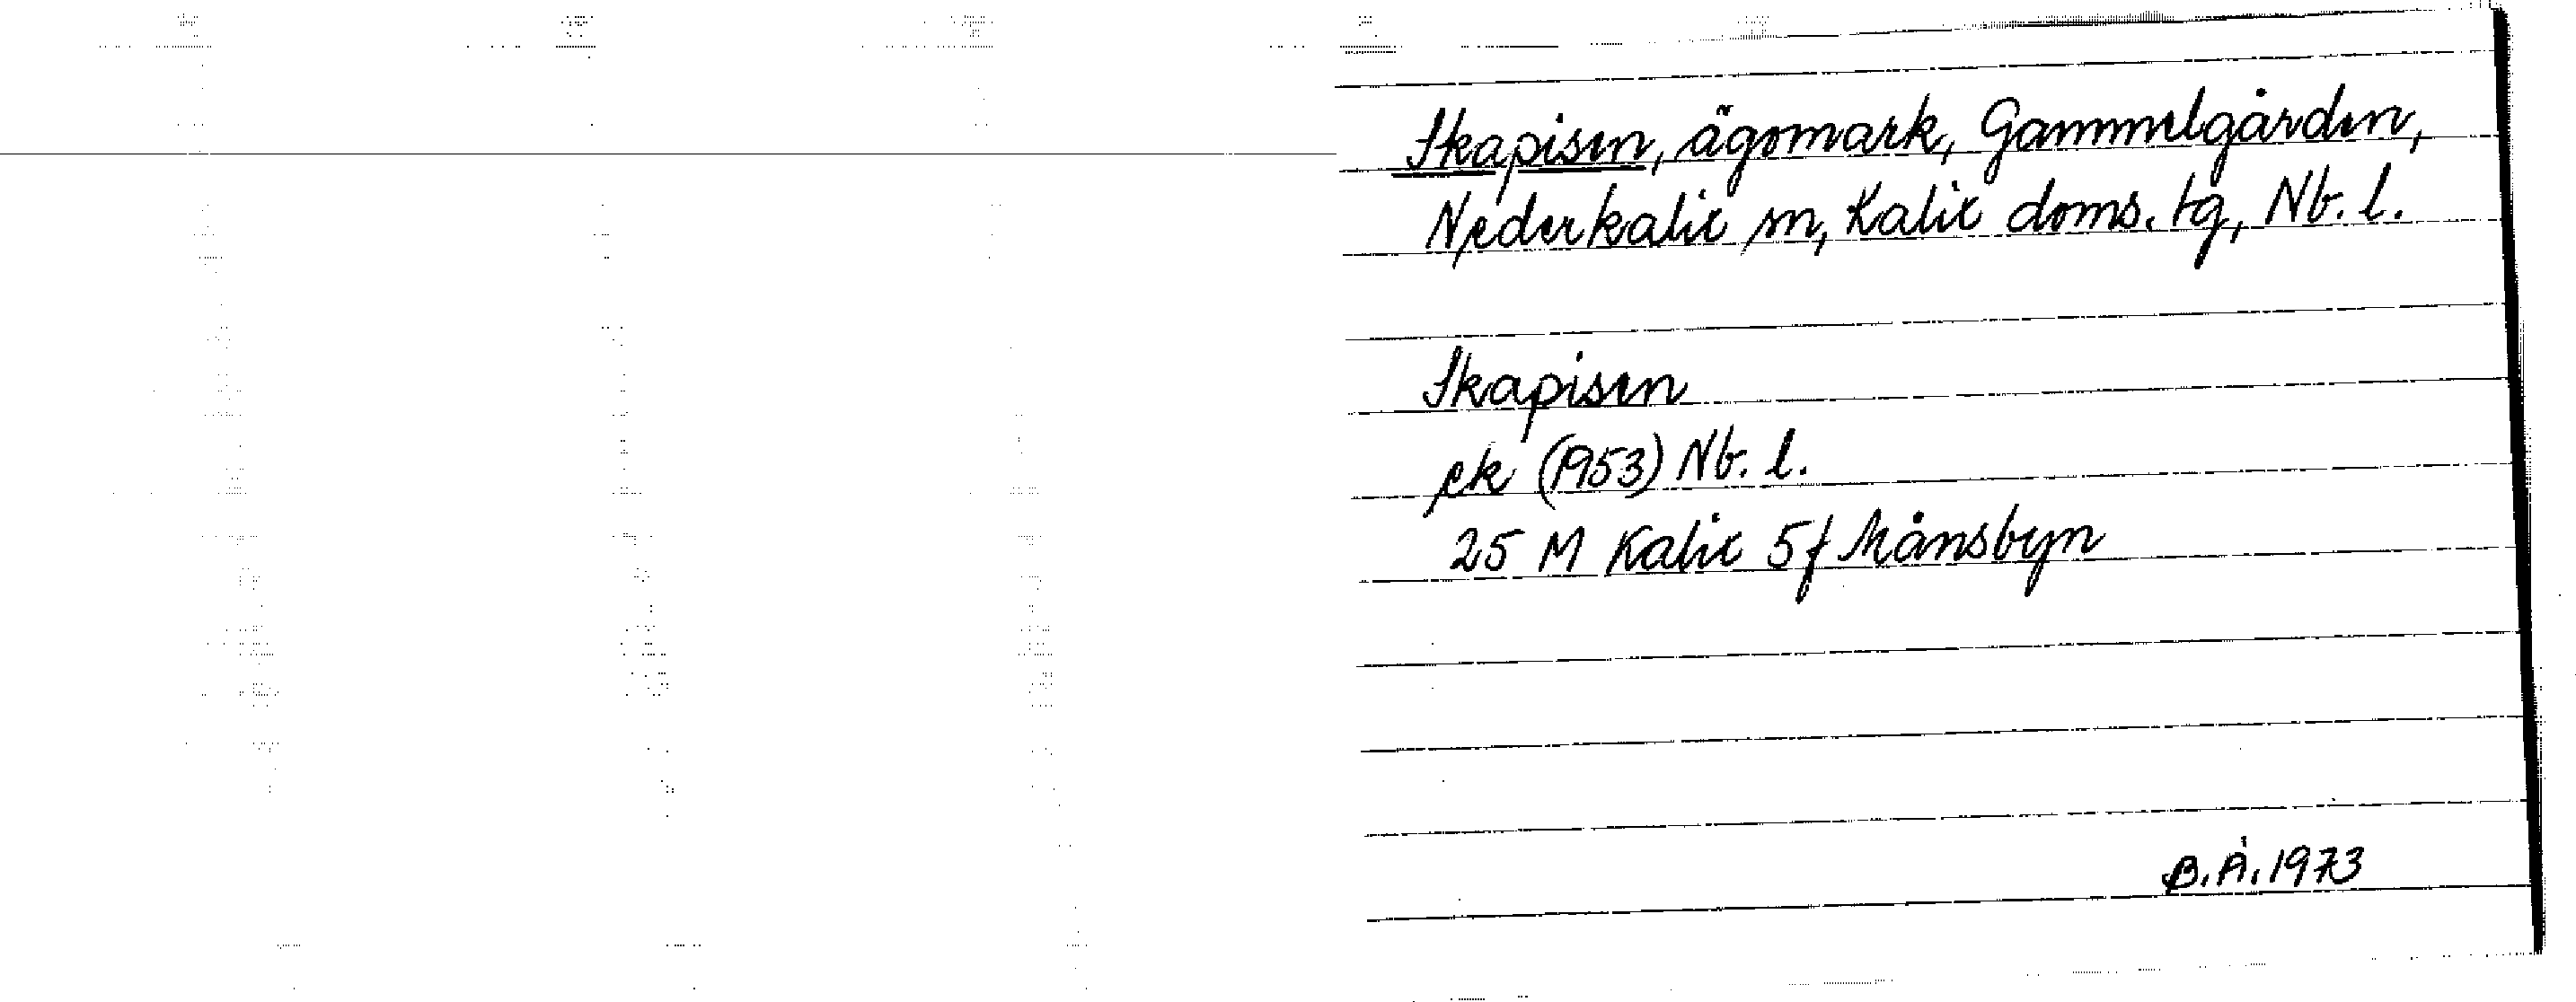 Skapisen, ägomark, Gammelgården,
Nederkalix sn, Kalix doms. tg, Nb. l.
Skapisen
ek (1953) Nb. l.
25 M Kalix 5f Månsbyn
B.Å. 1973